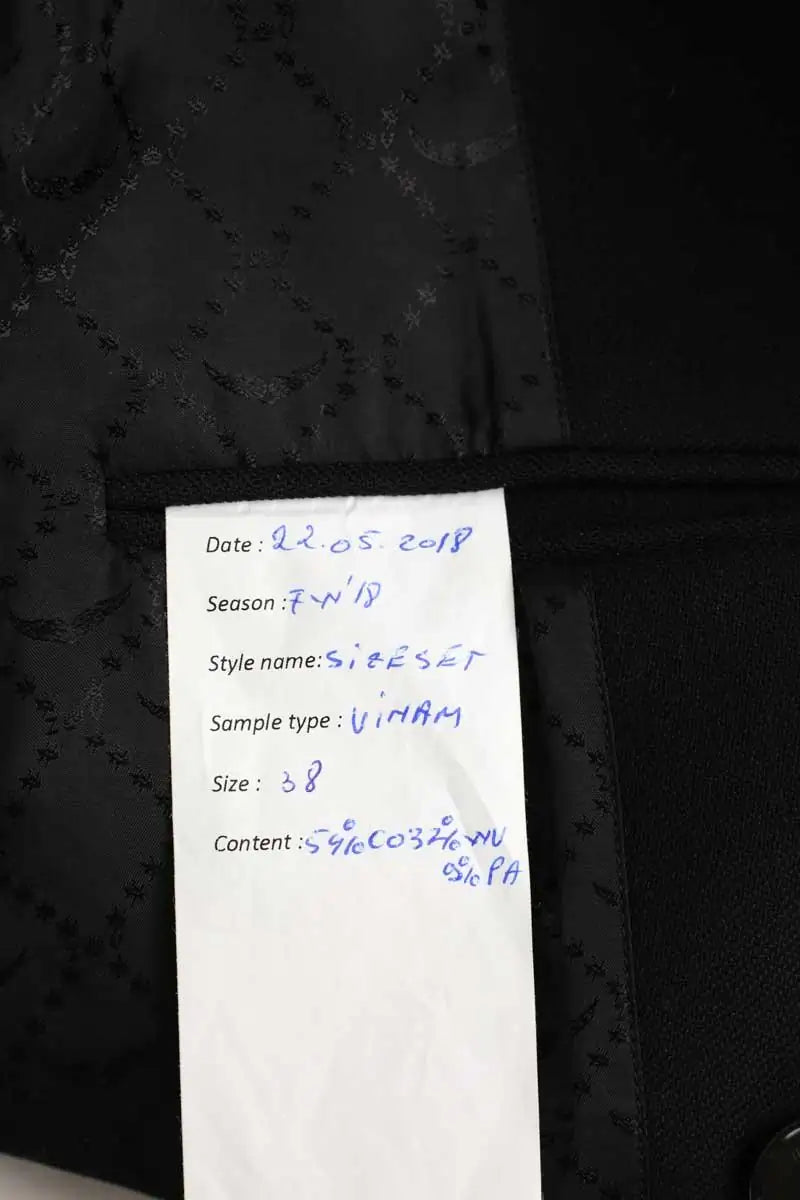 Date : 22.05.2018
Season : FW'18
Style name: SiZESET
Sample type : ViNAM
Size : 38
Content : 59% CO 32% WV
9% PA